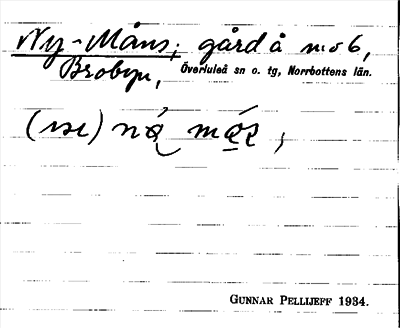 Ny-Måns, gård å no 6,
Brobyn, Överluleå sn o. tg, Norrbottens län.
GUNNAR PELLIJEFF 1934.